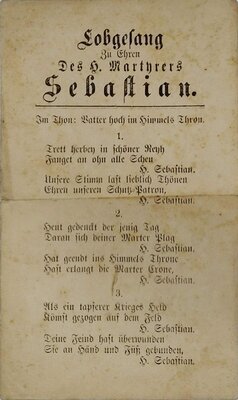 Lobgesang
Zu Ehren
Des H. Martyrers
Sebastian.
Im Thon: Vatter hoch im Himmels Thron.
1.
Trett herbey in schöner Reyh
Fanget an ohn alle Scheu
H. Sebastian.
Unsere Stimm last lieblich Thönen
Ehren unseren Schutz-Patron,
H. Sebastian.
2.
Heut gedenckt der jenig Tag
Daran sich deiner Marter Plag
H. Sebastian.
Hat geendt ins Himmels Throne
Hast erlangt die Marter Crone,
H. Sebastian.
3.
Als ein tapferer Krieges Held
Komst gezogen auf dem Feld
H. Sebastian.
Deine Feind hast überwunden
Sie an Händ und Füß gebunden,
H. Sebastian.